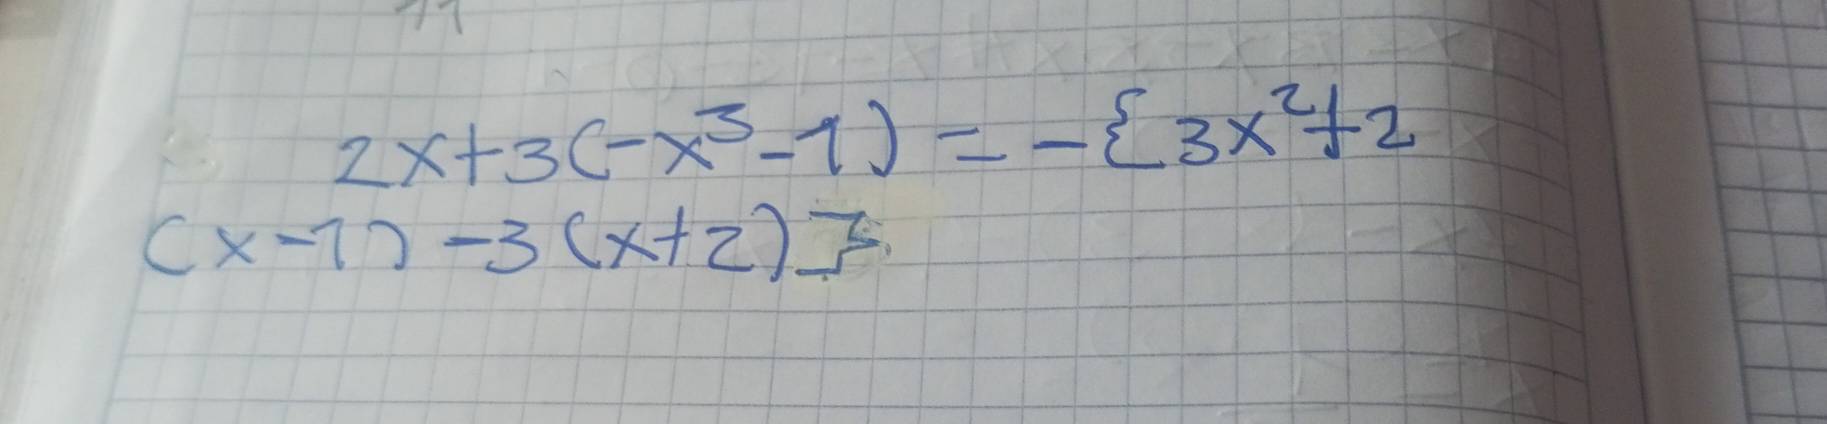 2x+3(-x³-1) = -{3x²+2
(x-1) -3(x+2)}